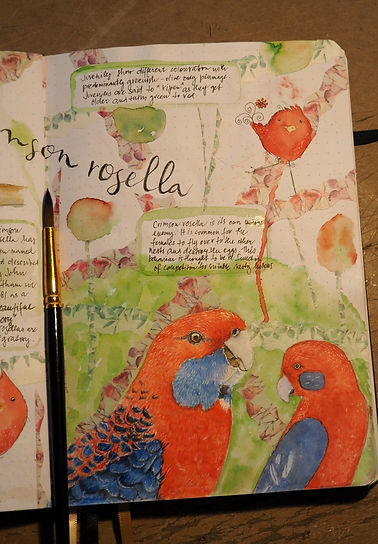 Juveniles show different colouration with
predominantly greenish-olive body plumage.
Juveniles are said to "ripen" as they get
older and turn green to red.
nson rosella
Crimson rosella is its own
enemy. It is common for the
females to fly over to the other
nests and destroy the eggs. This
behaviour is thought to be a function
of competition for suitable
rimson
osella has
n named
d described
John
tham in
81 as a
eautiful
ory
osellas are
gratory.